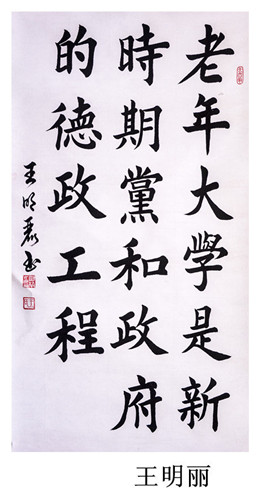 老年大學是新
時期黨和政府
的德政工程
王明麗书
王明丽